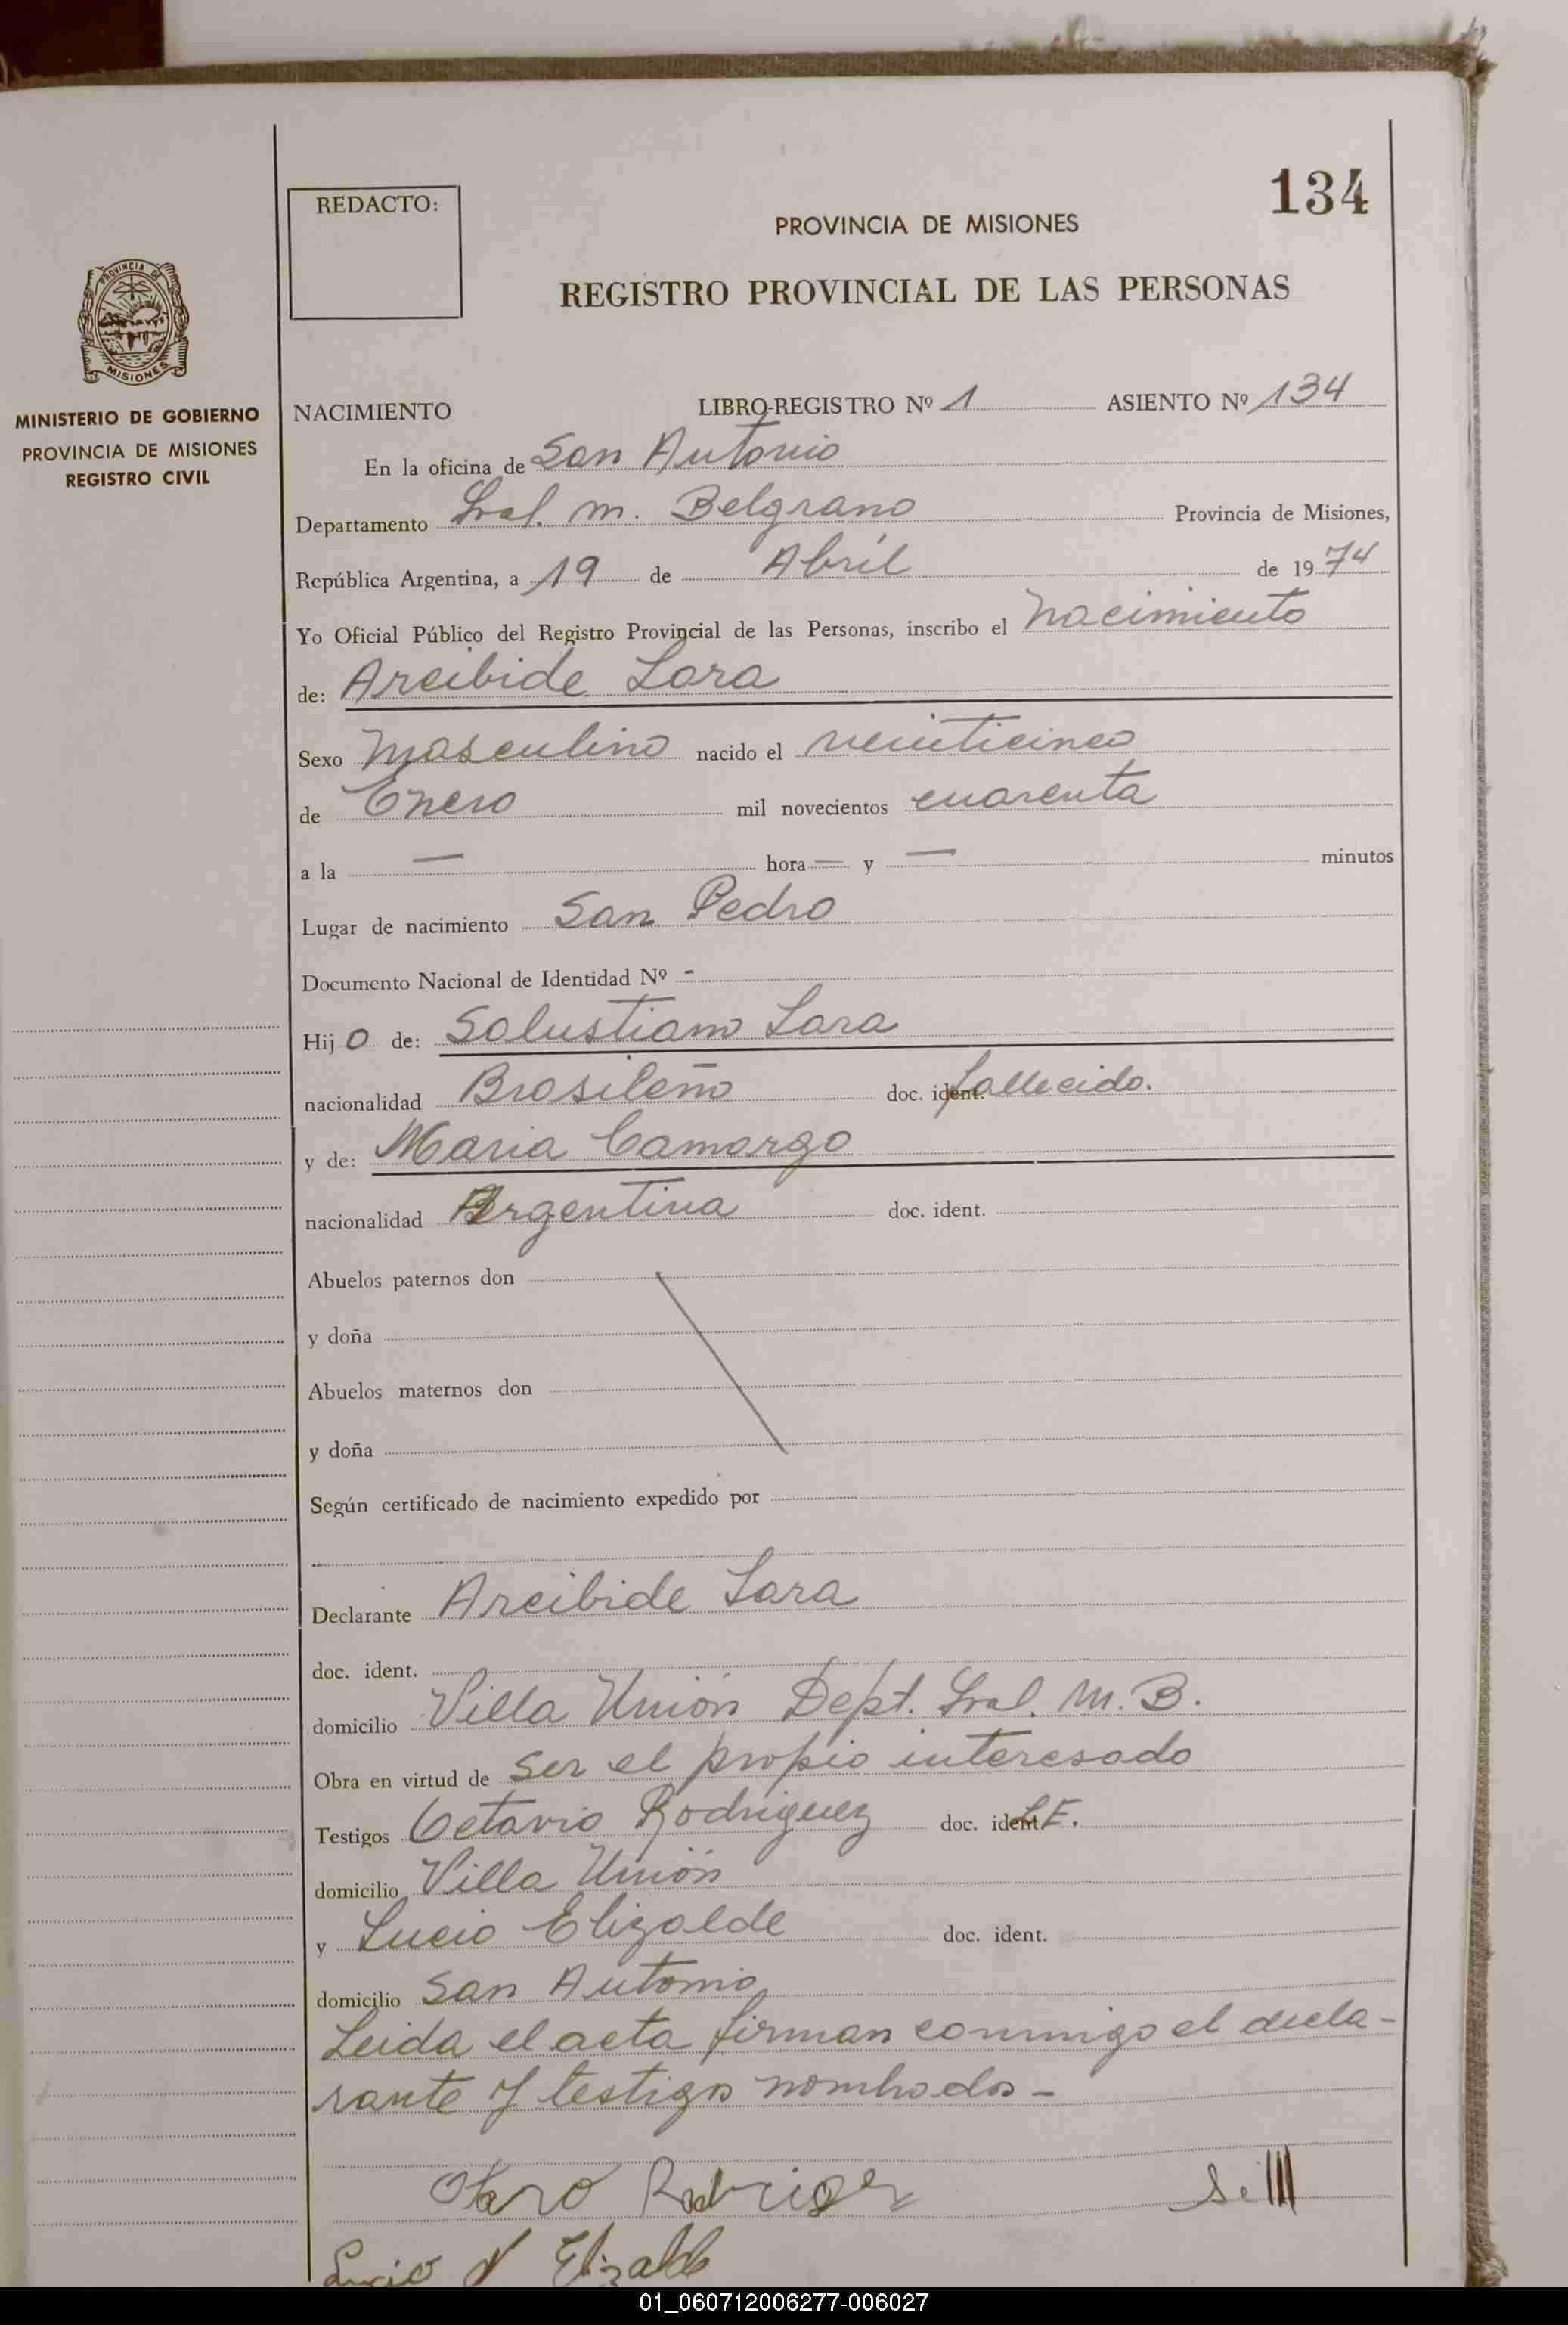 134
REDACTO:
PROVINCIA DE MISIONES
REGISTRO PROVINCIAL DE LAS PERSONAS
PROVINCIA DE
MISIONES
MINISTERIO DE GOBIERNO
PROVINCIA DE MISIONES
REGISTRO CIVIL
NACIMIENTO LIBRO-REGISTRO Nº 1 ASIENTO Nº 134
En la oficina de San Antonio
Departamento Gral. M. Belgrano Provincia de Misiones,
República Argentina, a 19 de Abril de 1974
Yo Oficial Público del Registro Provincial de las Personas, inscribo el nacimiento
de: Arcibide Lara
Sexo Masculino nacido el veinticinco
de Enero mil novecientos cuarenta
a la — hora — y — minutos
Lugar de nacimiento San Pedro
Documento Nacional de Identidad Nº -
Hijo de: Solustiano Lara
nacionalidad Brasileño doc. ident. fallecido.
y de: Maria Camargo
nacionalidad Argentina doc. ident.
Abuelos paternos don
y doña
Abuelos maternos don
y doña
Según certificado de nacimiento expedido por
Declarante Arcibide Lara
doc. ident.
domicilio Villa Unión Dept. Gral. M. B.
Obra en virtud de ser el propio interesado
Testigos Octavio Rodriguez doc. ident. L.E.
domicilio Villa Unión
y Lucio Elizalde doc. ident.
domicilio San Antonio
Leida el acta firman conmigo el decla-
rante y testigos nombrados -
Lucio N Elizalde
01_060712006277-006027